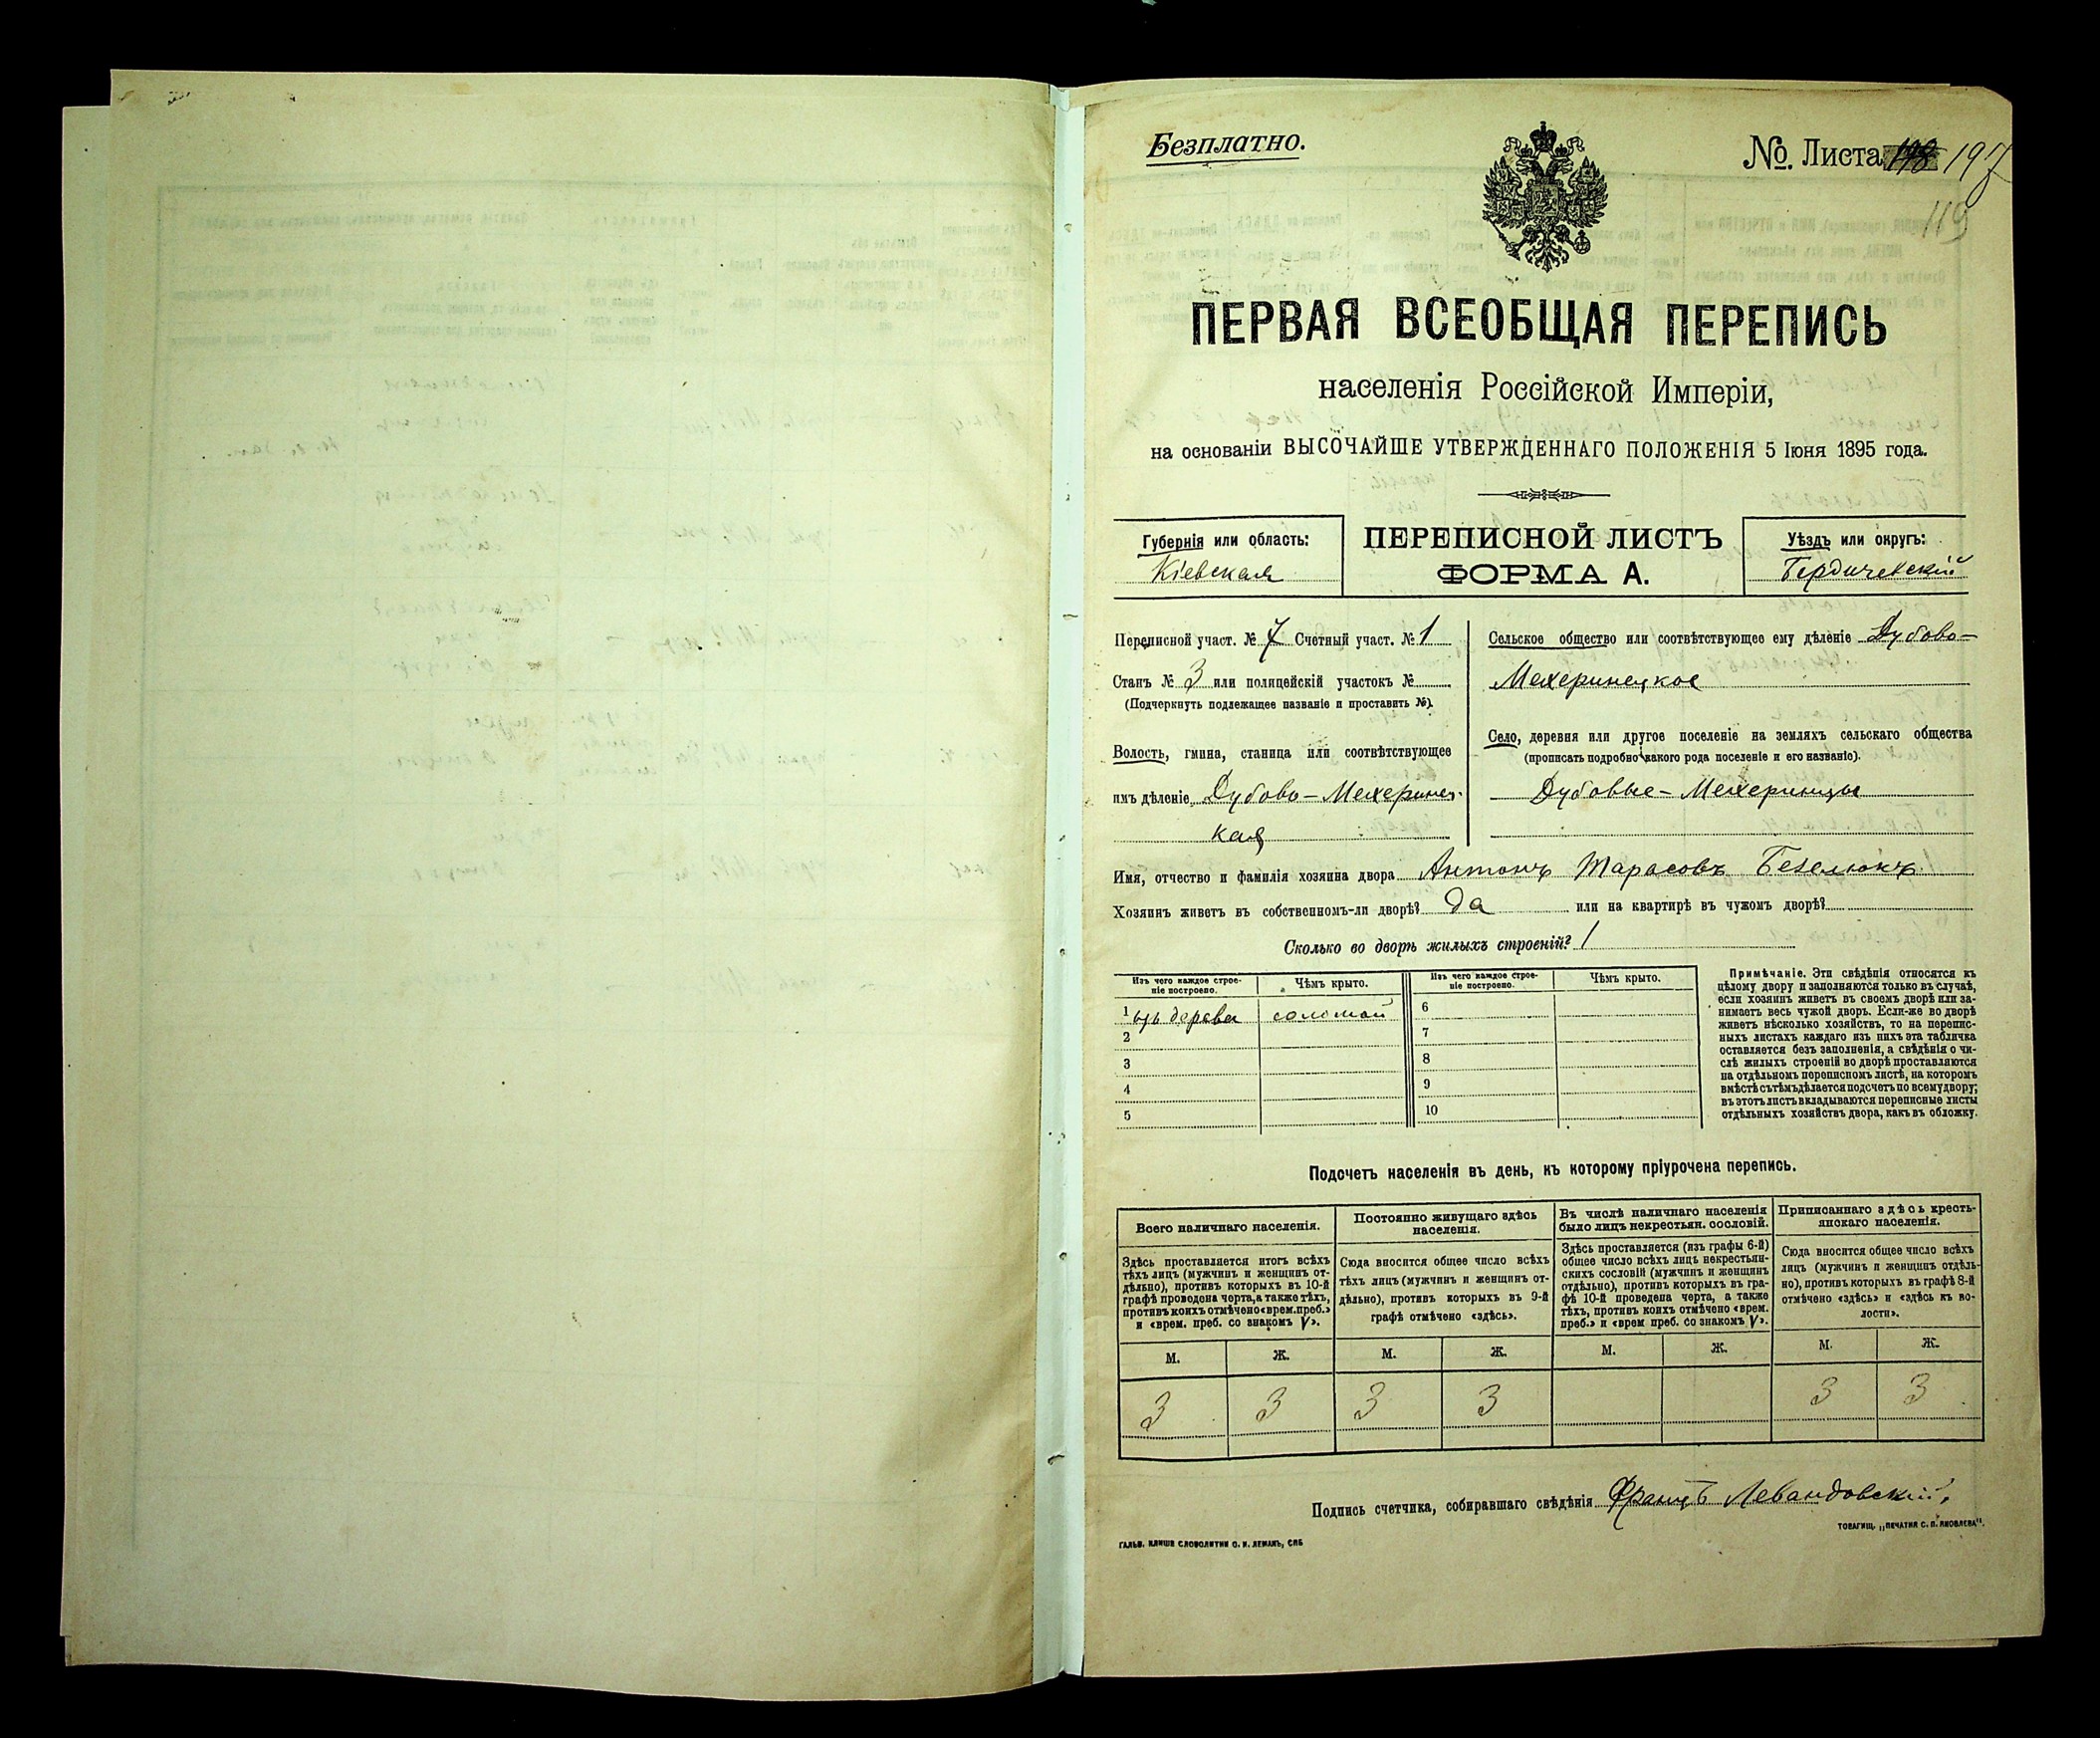 Безплатно.
№. Листа 197
119
ПЕРВАЯ ВСЕОБЩАЯ ПЕРЕПИСЬ
населенія Россійской Имперіи,
на основаніи ВЫСОЧАЙШЕ УТВЕРЖДЕННАГО ПОЛОЖЕНІЯ 5 Іюня 1895 года.
Губернія или область:
Кіевская
ПЕРЕПИСНОЙ ЛИСТЪ
ФОРМА А.
Уѣздъ или округъ:
Бердичевскій
Переписной участ. № 7 Счетный участ. № 1
Станъ № 3 или полицейскій участокъ №
(Подчеркнуть подлежащее названіе и проставить №).
Волость, гмина, станица или соотвѣтствующее
имъ дѣленіе Дубово-Мехеринец-
кая
Сельское общество или соотвѣтствующее ему дѣленіе Дубово-
Мехеринецкое
Село, деревня или другое поселеніе на земляхъ сельскаго общества
(прописать подробно какого рода поселеніе и его названіе).
Дубовые-Мехеринцы
Имя, отчество и фамилія хозяина двора Антонъ Тарасовъ Безелюкъ
Хозяинъ живетъ въ собственномъ-ли дворѣ? да или на квартирѣ въ чужомъ дворѣ?
Сколько во дворѣ жилыхъ строеній? 1
Изъ чего каждое строе-
ніе построено.
Чѣмъ крыто.
Изъ чего каждое строе-
ніе построено.
Чѣмъ крыто.
1 изъ дерева соломой
2
3
4
5
6
7
8
9
10
Примѣчаніе. Эти свѣдѣнія относятся къ
цѣлому двору и заполняются только въ случаѣ,
если хозяинъ живетъ въ своемъ дворѣ или за-
нимаетъ весь чужой дворъ. Если-же во дворѣ
живетъ нѣсколько хозяйствъ, то на перепис-
ныхъ листахъ каждаго изъ нихъ эта табличка
оставляется безъ заполненія, а свѣдѣнія о чи-
слѣ жилыхъ строеній во дворѣ проставляются
на отдѣльномъ переписномъ листѣ, на которомъ
вмѣстѣ съ тѣмъ дѣлается подсчетъ по всему двору;
въ этотъ листъ вкладываются переписные листы
отдѣльныхъ хозяйствъ двора, какъ въ обложку.
Подсчетъ населенія въ день, къ которому пріурочена перепись.
Всего наличнаго населенія.
Здѣсь проставляется итогъ всѣхъ
тѣхъ лицъ (мужчинъ и женщинъ от-
дѣльно), противъ которыхъ въ 10-й
графѣ проведена черта, а также тѣхъ,
противъ коихъ отмѣчено «врем. преб.»
и «врем. преб. со знакомъ V».
М. Ж.
3 3
Постоянно живущаго здѣсь
населенія.
Сюда вносится общее число всѣхъ
тѣхъ лицъ (мужчинъ и женщинъ от-
дѣльно), противъ которыхъ въ 9-й
графѣ отмѣчено «здѣсь».
М. Ж.
3 3
Въ числѣ наличнаго населенія
было лицъ некрестьян. сословій.
Здѣсь проставляется (изъ графы 6-й)
общее число всѣхъ лицъ некрестьян-
скихъ сословій (мужчинъ и женщинъ
отдѣльно), противъ которыхъ въ гра-
фѣ 10-й проведена черта, а также
тѣхъ, противъ коихъ отмѣчено «врем.
преб.» и «врем преб. со знакомъ V».
М. Ж.
Приписаннаго здѣсь кресть-
янскаго населенія.
Сюда вносится общее число всѣхъ
лицъ (мужчинъ и женщинъ отдѣль-
но), противъ которыхъ въ графѣ 8-й
отмѣчено «здѣсь» и «здѣсь къ во-
лости».
М. Ж.
3 3
Подпись счетчика, собиравшаго свѣдѣнія Францъ Левандовскій.
ТОВАРИЩ. „ПЕЧАТНЯ С. П. ЯКОВЛЕВА".
ГАЛЬВ. КЛИШЕ СЛОВОЛИТНИ О. И. ЛЕМАНЪ, СПБ